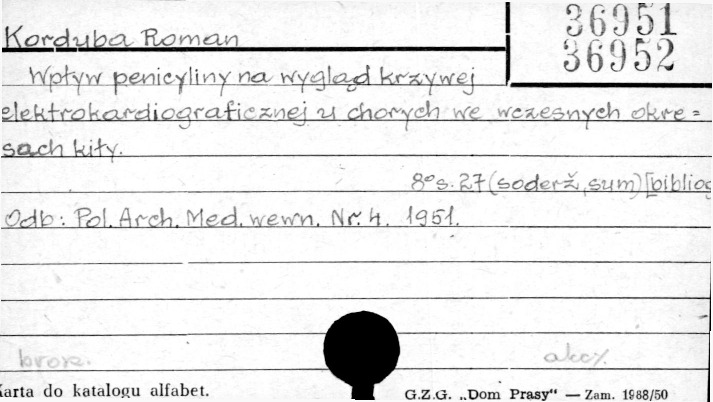 Korduba Roman
36951
36952
Wpływ penicyliny na wygląd krzywej
elektrokardiograficznej u chorych we wczesnych okre=
sach kiły.
8° s. 27 (soderž, sum) [bibliog
Odb: Pol. Arch. Med. wewn. Nr. 4. 1951.
brosz.
akc.
Karta do katalogu alfabet.
G.Z.G. „Dom Prasy" — Zam. 1988/50